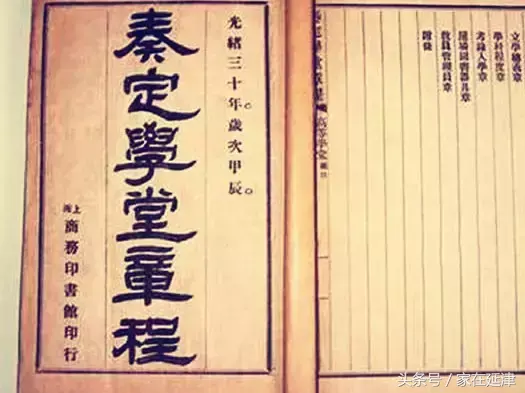 光緒三十年歲次甲辰
奏定學堂章程
上海
商務印書館印行
立學總義章
學科程度章
考錄入學章
屋場圖書器具章
教員管理員章
附條
高等學堂
头条号 / 家在延津